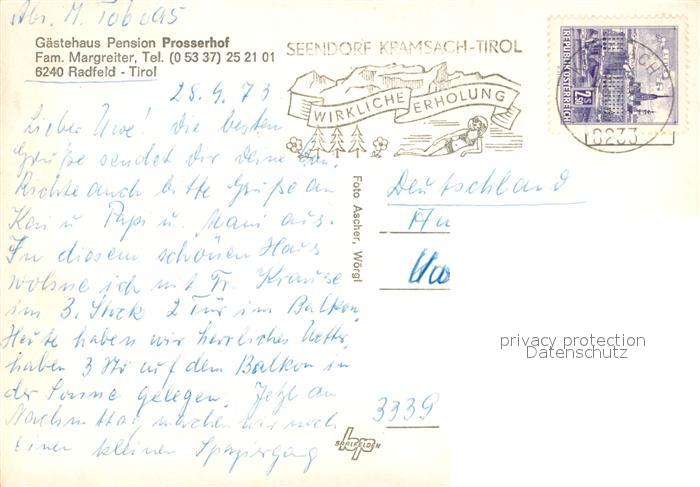 Abs. M.
Gästehaus Pension Prosserhof
Fam. Margreiter, Tel. (0 53 37) 25 21 01
6240 Radfeld - Tirol
SEENDORF KRAMSACH-TIROL
WIRKLICHE ERHOLUNG
REPUBLIK ÖSTERREICH
6233
28.9.73
Lieber Uwe! Die besten
Grüße sendet dir deine
Richte auch bitte Grüße an
Kai u. Papi u. Mami aus.
In diesem schönen Haus
wohne ich mit Fr. Krause
im 3. Stock 2 Tür im Balkon.
Heute haben wir herrliches Wetter,
haben 3 Std auf dem Balkon in
der Sonne gelegen. Jetzt am
Nachmittag machen wir noch
einen kleinen Spaziergang
Foto Ascher, Wörgl
Deutschland
An
3339
SAALFELDEN
privacy protection
Datenschutz